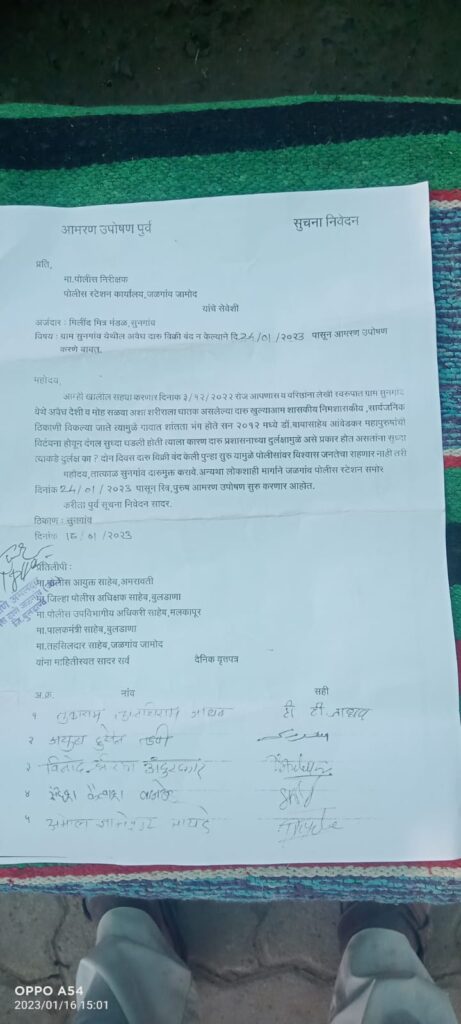 आमरण उपोषण पुर्व सुचना निवेदन
प्रति,
मा.पोलीस निरीक्षक
पोलीस स्टेशन कार्यालय,जळगांव जामोद
यांचे सेवेशी
अर्जदार : मिलींद मित्र मंडळ,सुनगांव
विषय : ग्राम सुनगांव येथील अवेध दारु विक्री बंद न केल्याने दि.24/01/2023 पासून आगरण उपोषण
करणे बाबत.
महोदय,
आम्ही खालील सह्या करणार दिनांक ३/१२/२०२२ रोज आपणास व वरिष्ठांना लेखी स्वरुपात ग्राम सुनगांव
येथे अवेध देशी व मोह सळवा अशा शरीराला घातक असलेल्या दारु खुल्याआम शासकीय निमशासकीय ,सार्वजनिक
ठिकाणी विकल्या जाते त्यामुळे गावात शांतता भंग होते सन २०१२ मध्ये डॉ.बाबासाहेब आंबेडकर महापुरुषांची
विटंबना होवून दंगल सुध्दा घडली होती त्याला कारण दारु प्रशासनाच्या दुर्लक्षामुळे असे प्रकार होत असतांना सुध्दा
त्याकडे दुर्लक्ष का ? दोन दिवस दारु विक्री बंद केली पुन्हा सुरु यामुळे पोलीसांवर विश्वास जनतेचा राहणार नाही तरी
महोदय,तात्काळ सुनगांव दारुमुक्त करावे.अन्यथा लोकशाही मार्गाने जळगांव पोलीस स्टेशन समोर
दिनांक 24/01/2023 पासून स्त्रि,पुरुष आमरण उपोषण सुरु करणार आहोत.
करीता पुर्व सुचना निवेदन सादर.
ठिकाण : सुनगांव
दिनांक 16/01/2023
प्रतिलीपी :
मा.पोलीस आयुक्त साहेब,अमरावती
मा.जिल्हा पोलीस अधिक्षक साहेब,बुलडाणा
मा.पोलीस उपविभागीय अधिकरी साहेब,मलकापूर
मा.पालकमंत्री साहेब,बुलडाणा
मा.तहसिलदार साहेब,जळगांव जामोद
यांना माहितीस्तव सादर सर्व दैनिक वृत्तपत्र
अ.क्र. नांव सही
१ तुकाराम जाधव टी टी जाधव
२ तडवी
३ विनोद
४
५
OPPO A54
2023/01/16 15:01